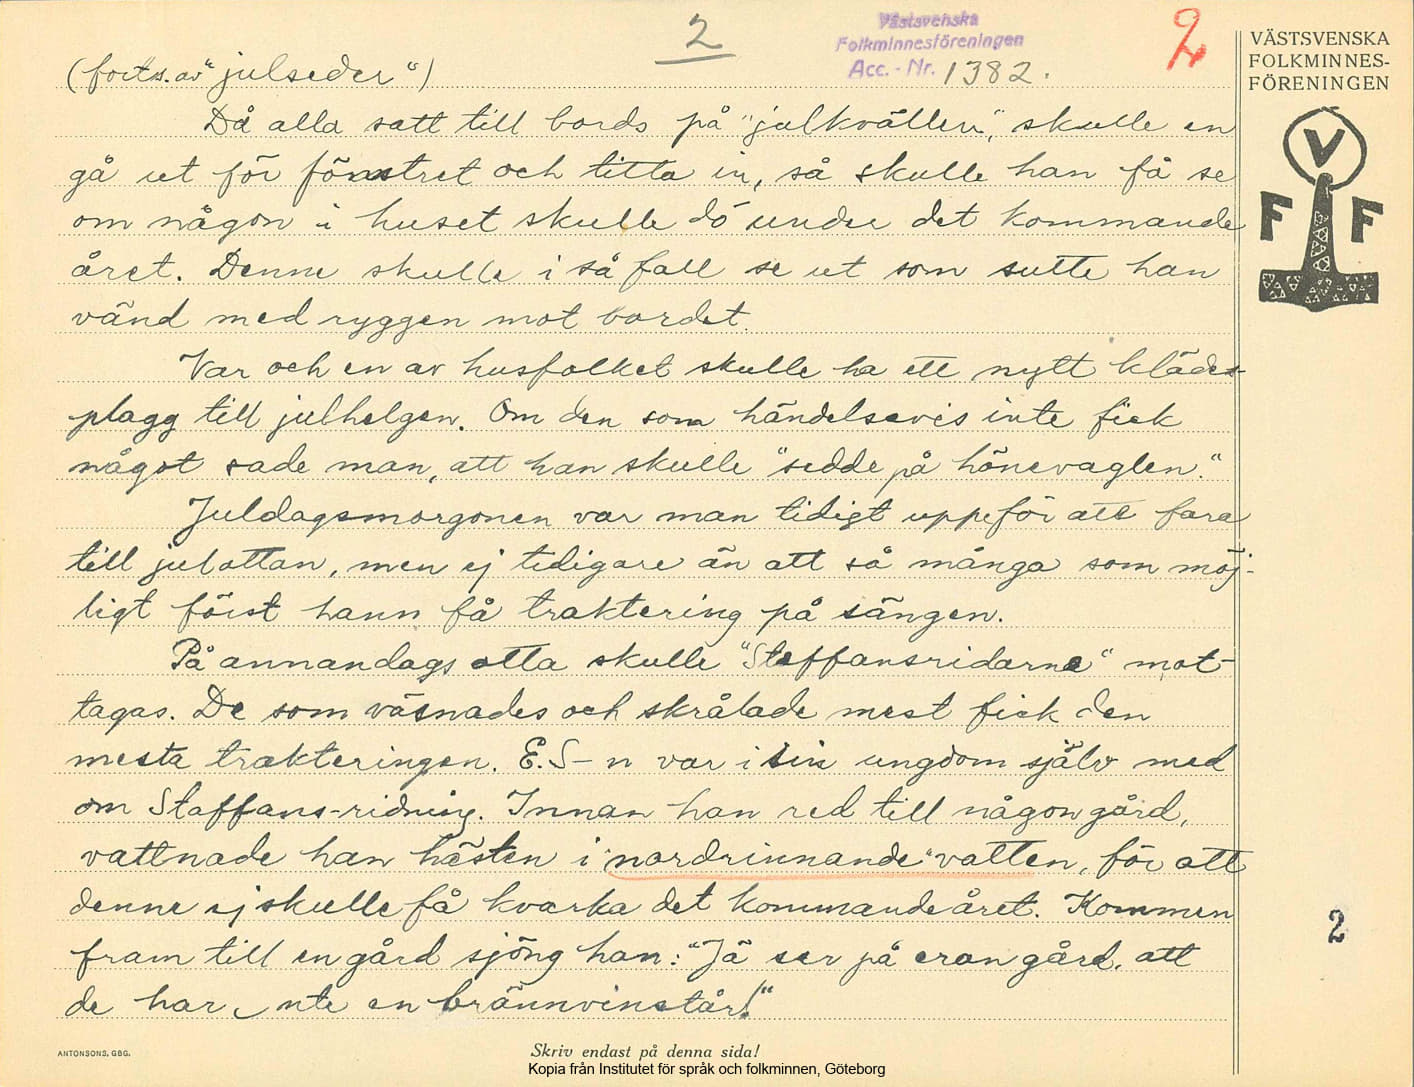 2
Västsvenska
Folkminnesföreningen
Acc. - Nr. 1382.
2
VÄSTSVENSKA
FOLKMINNES-
FÖRENINGEN
V
F F
(forts. av "julseder")
Då alla satt till bords på "julkvällen", skulle en
gå ut för fönstret och titta in, så skulle han få se
om någon i huset skulle dö under det kommande
året. Denne skulle i så fall se ut som sutte han
vänd med ryggen mot bordet.
Var och en av husfolket skulle ha ett nytt klädes-
plagg till julhelgen. Om den som händelsevis inte fick
något sade man, att han skulle "sedde på hönevaglen."
Juldagsmorgonen var man tidigt uppe för att fara
till julottan, men ej tidigare än att så många som möj-
ligt först hann få traktering på sängen.
På annandags otta skulle "Staffansridarne" mot-
tagas. De som väsnades och skrålade mest fick den
mesta trakteringen. E.S-n var i sin ungdom själv med
om Staffans-ridning. Innan han red till någon gård,
vattnade han hästen i "nordrinnande" vatten, för att
denne ej skulle få kvarka det kommande året. Kommen
fram till en gård sjöng han: "Jä ser på eran gård, att
de har inte en brännvinstår!"
2
ANTONSONS, GBG.
Skriv endast på denna sida!
Kopia från Institutet för språk och folkminnen, Göteborg